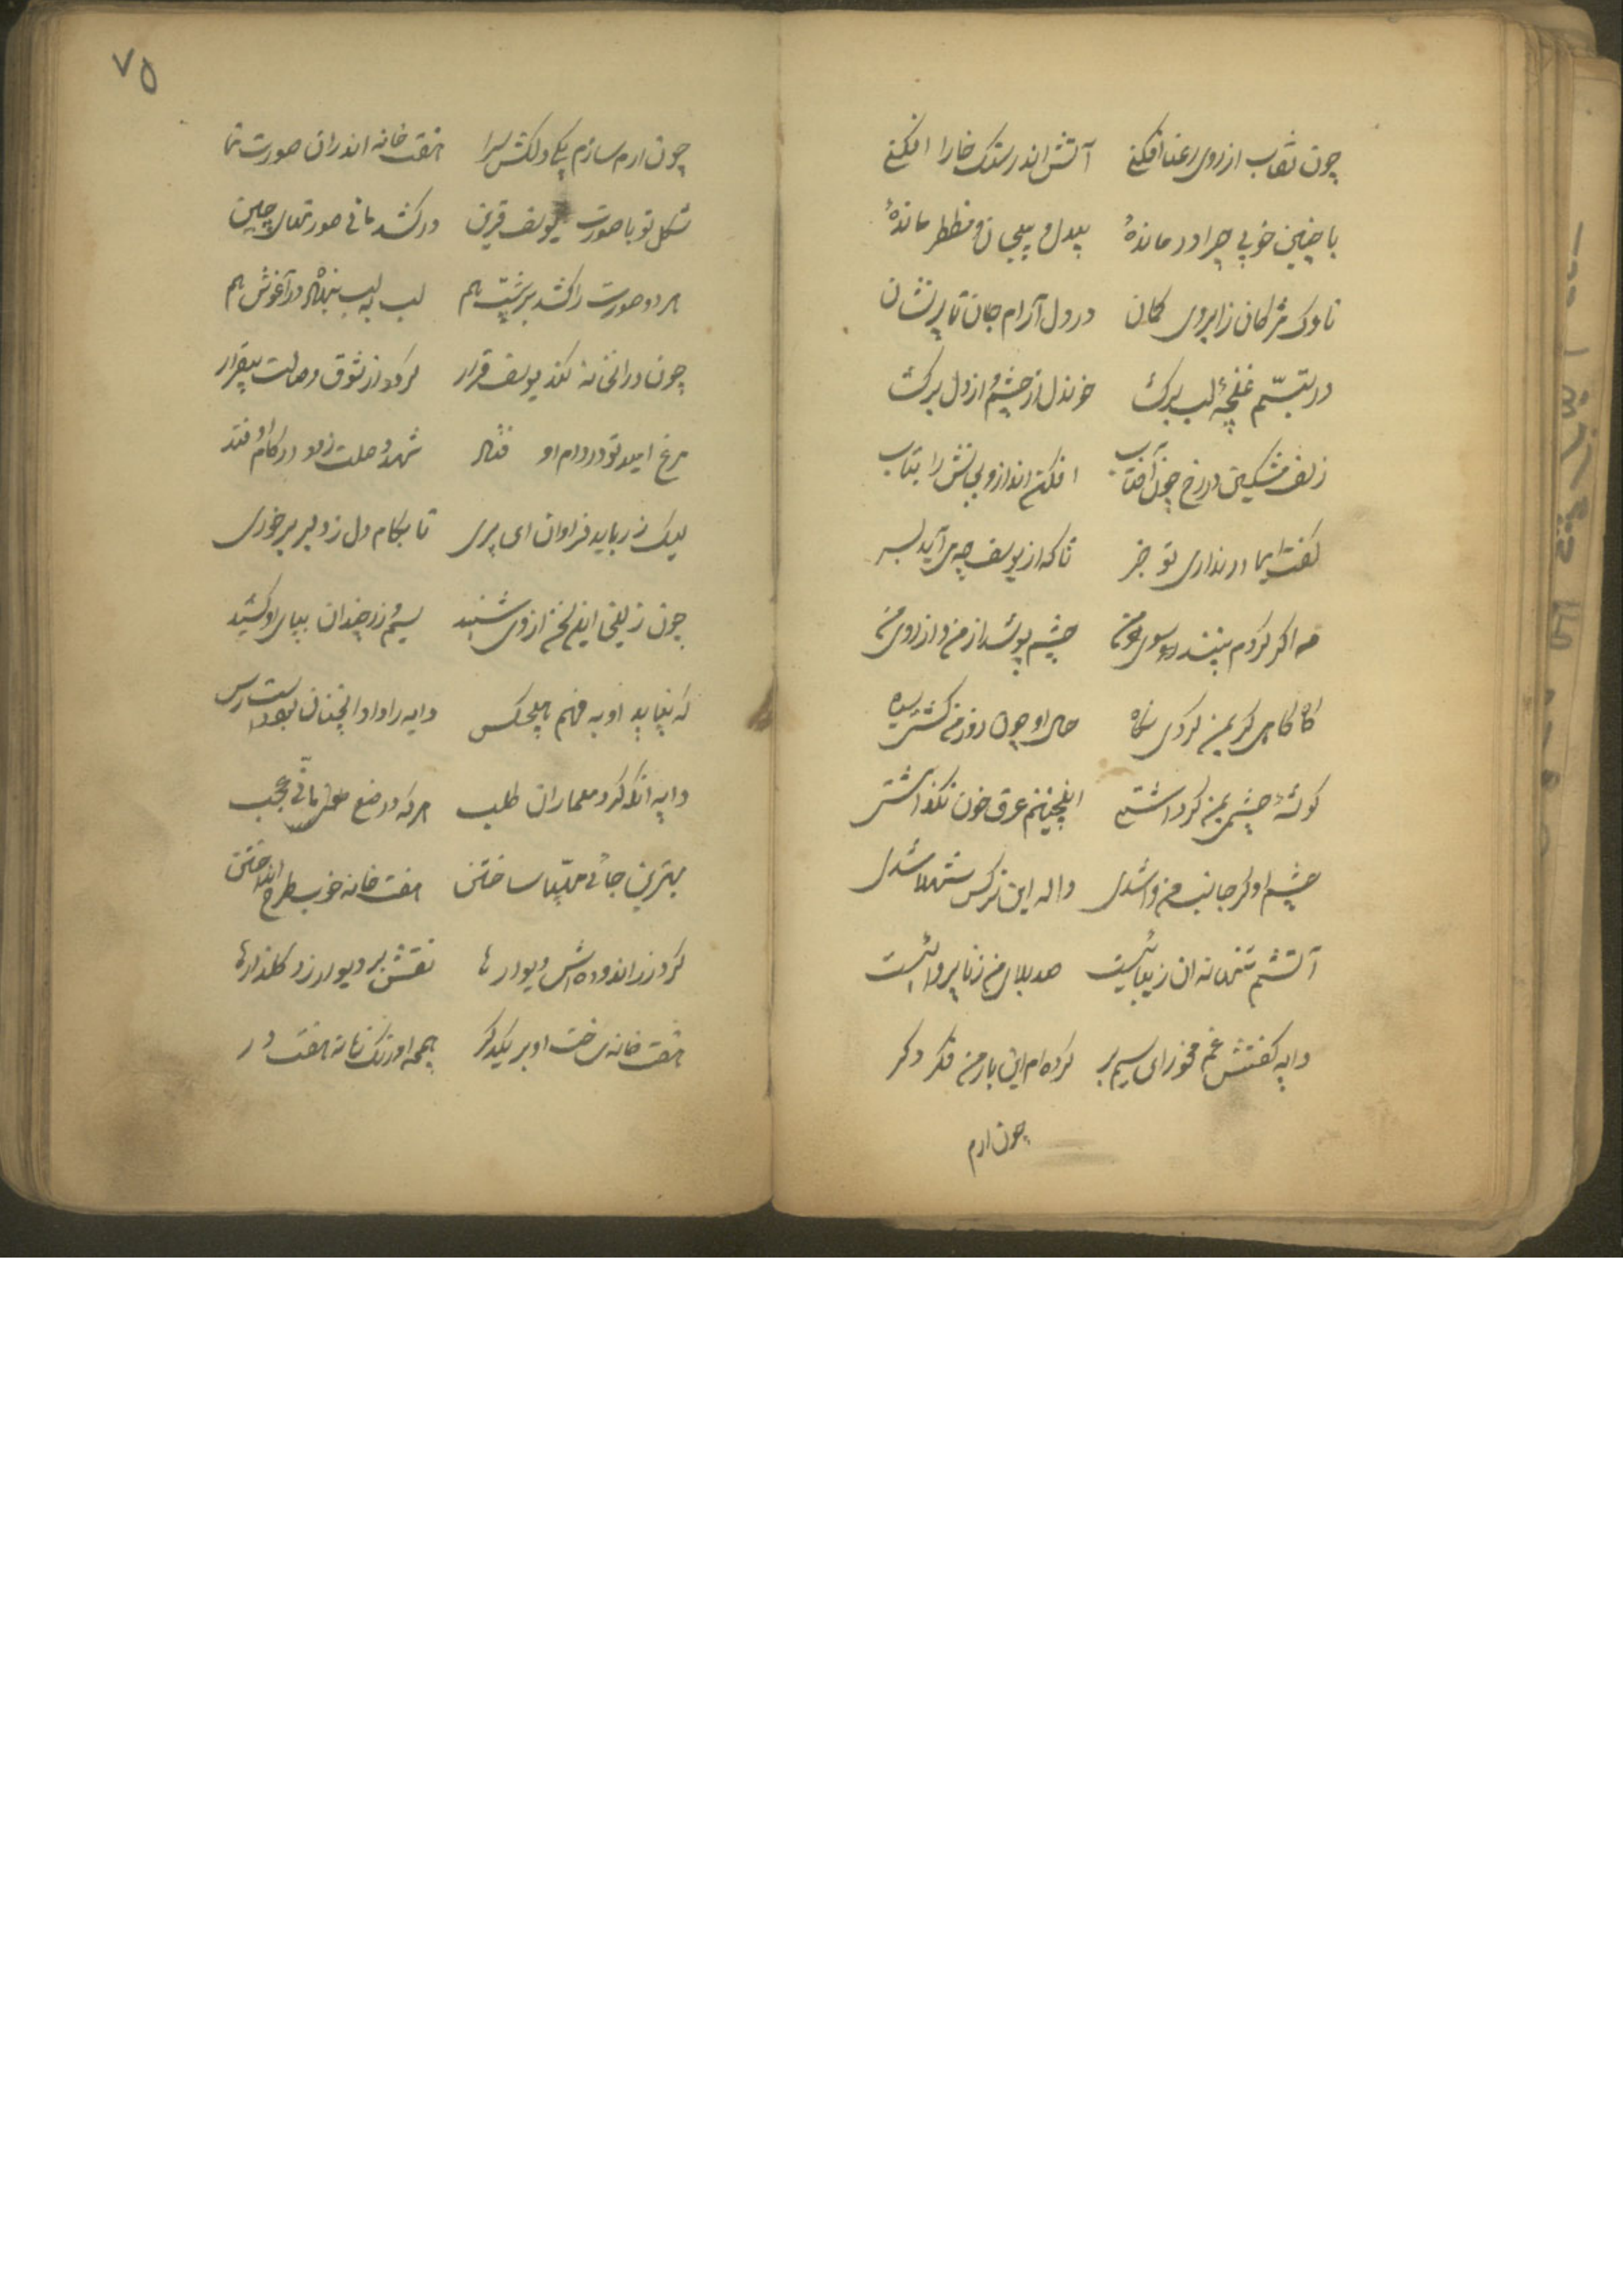 چون نقاب از روی رعنا افکنی آتش اندر سنک خارا افکنی
با چنین خوبی چرا در ماندهٔ بیدل و پیچان و مظطر ماندهٔ
ناوک مژکان ز ابروی کمان در دل آرام جان تا پر نشان
در تبسّم غنچهٔ لب برکشا خوندل از چشم و از دل برکشا
زلف مشکین در رخ چون آفتاب افکن انداز و بجانش را بتاب
کفت ایمادر نداری تو خبر تا که از یوسف چه می آید بسر
من اکر کردم ببیند سوی من چشم پوشد از من و از روی من
گاه گاهی کر بمن کردی نگاه حال او چون روز من کشتی سیاه
کوشهٔ چشمی بمن کر داشتی اینچنینم غرق خون نکذاشتی
چشم او کر جانب من وا شدی واله این نرکس شهلا شدی
آتشم تنها نه ان زیباییست صد بلای من زنا پرواییست
دایه کفتش غم مخور ای سیم بر کرده‌ام این بار من فکر دکر
چون ارم
۷۵
چون ارم سازم یکی دلکش سرا هفت خانه اندران صورت نما
شکل تو با صورت یوسف قرین درکشد مانی صورتهای چین
هر دو صورت را کشد بر شپت هم لب به لب بنهاده در آغوش هم
چون در انخانه کند یوسف قرار کردد از شوق وصالت بیقرار
مرغ امید تو در دام او فتد شهد وصلت زود در کام او فتد
لیک زر باید فراوان ای پری تا بکام دل ز دلبر برخوری
چون زلیخا این سخن از وی شنید سیم و زر چندان بپای او کشید
که نیاید او به فهم هیچکس دایه را داد انچنان بود دست رس
دایه انکه کرد معماران طلب هر که در صنع مانی عجب
بهترین جائی مهیّا ساختن هفت خانه خوب طرح انداختن
کرد زر اندوده اش دیوارها نقش بر دیوار زد کلذارها
هفت خانه ساخت او بر یکدکر جمله اورنک خانه هفت در